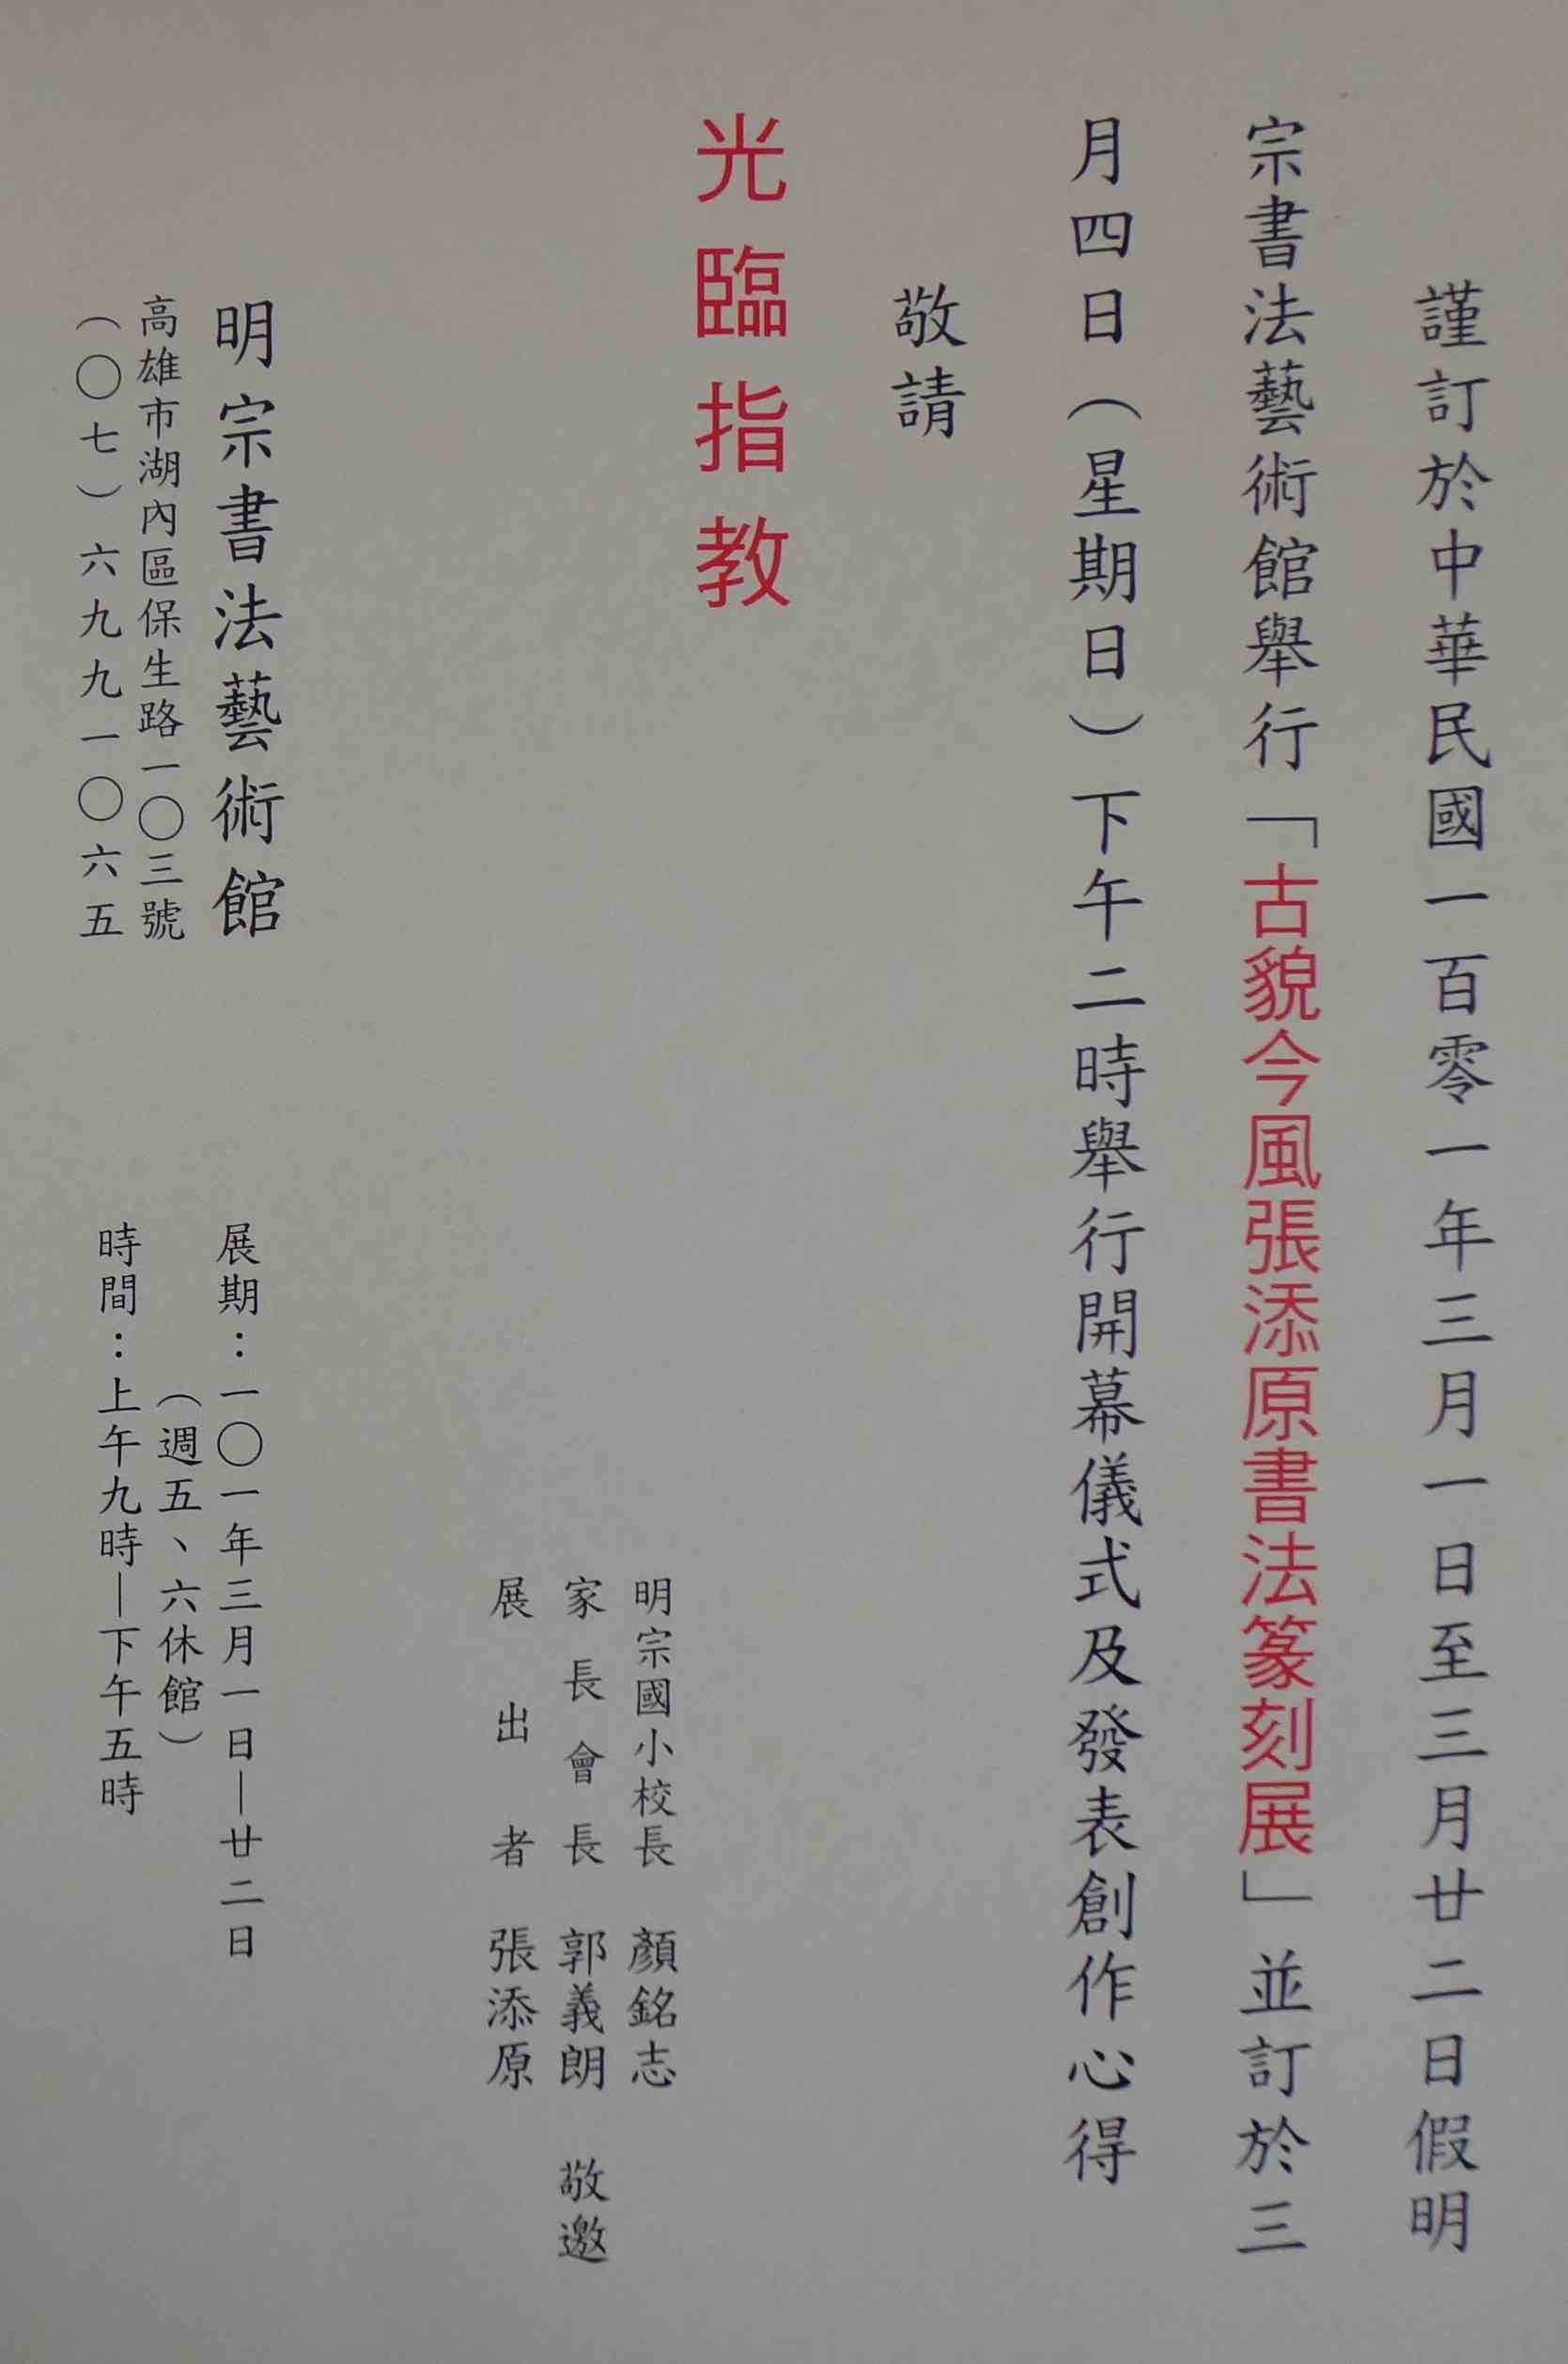 謹訂於中華民國一百零一年三月一日至三月廿二日假明
宗書法藝術館舉行「古貌今風張添原書法篆刻展」並訂於三
月四日（星期日）下午二時舉行開幕儀式及發表創作心得
敬請
光臨指教
明宗國小校長 顏銘志
家長會長 郭義朗 敬邀
展出者 張添原
明宗書法藝術館
高雄市湖內區保生路一〇三號
（〇七）六九九一〇六五
展期：一〇一年三月一日—廿二日
（週五、六休館）
時間：上午九時—下午五時